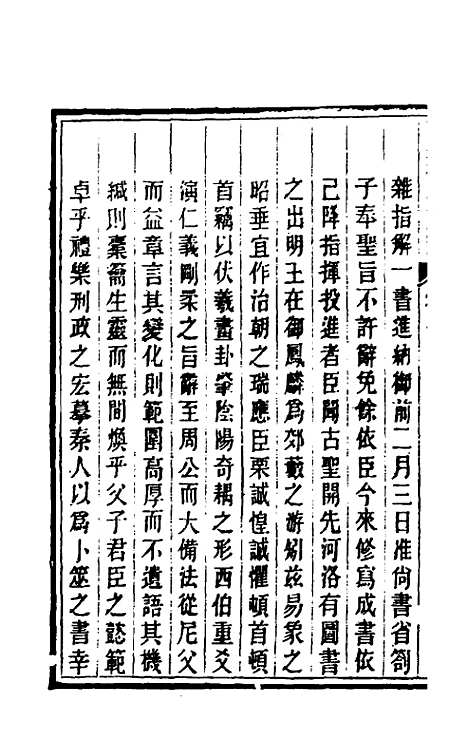 雜指解一書進納御前二月三日准尙書省劄
子奉聖旨不許辭免餘依臣今來修寫成書依
已降指揮投進者臣聞古聖開先河洛有圖書
之出明王在御鳳麟爲郊藪之游矧茲易象之
昭垂宜作治朝之瑞應臣栗誠惶誠懼頓首頓
首竊以伏羲畫卦肇陰陽奇耦之形西伯重爻
演仁義剛柔之旨辭至周公而大備法從尼父
而益章言其變化則範圍高厚而不遺語其機
緘則橐籥生靈而無間煥乎父子君臣之懿範
卓乎禮樂刑政之宏摹秦人以爲卜筮之書幸